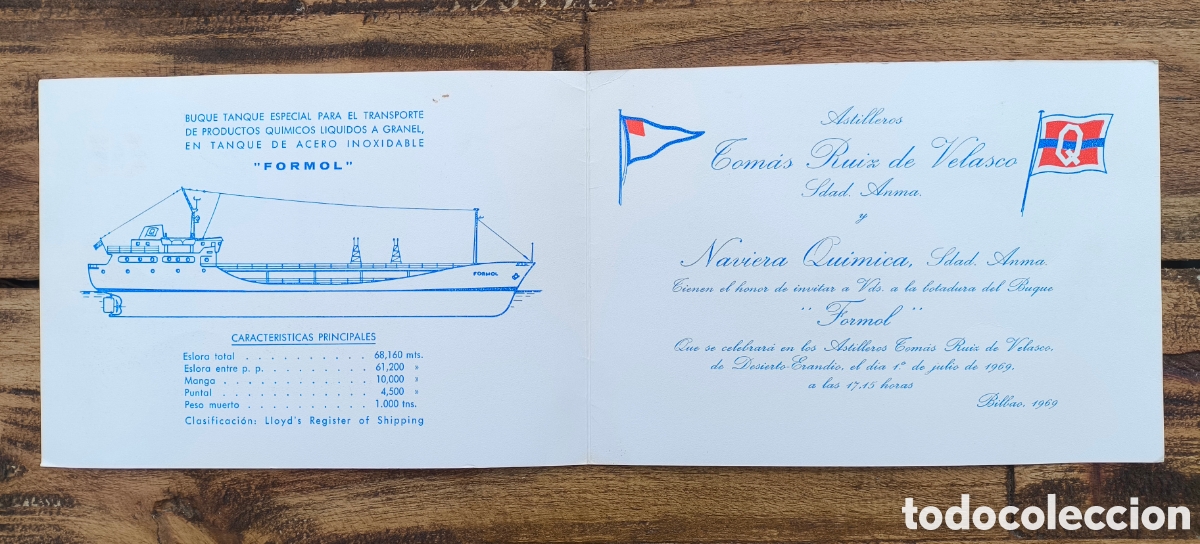 BUQUE TANQUE ESPECIAL PARA EL TRANSPORTE
DE PRODUCTOS QUIMICOS LIQUIDOS A GRANEL,
EN TANQUE DE ACERO INOXIDABLE
"FORMOL"
FORMOL
CARACTERISTICAS PRINCIPALES
Eslora total . . . . . . . . . . . 68,160 mts.
Eslora entre p. p. . . . . . . . . 61,200 »
Manga . . . . . . . . . . . . . 10,000 »
Puntal . . . . . . . . . . . . . 4,500 »
Peso muerto . . . . . . . . . . 1.000 tns.
Clasificación: Lloyd's Register of Shipping
Astilleros
Tomás Ruiz de Velasco
Sdad. Anma.
y
Naviera Quimica, Sdad. Anma.
Tienen el honor de invitar a Vds. a la botadura del Buque
"Formol"
Que se celebrará en los Astilleros Tomás Ruiz de Velasco,
de Desierto-Erandio, el dia 1.º de julio de 1969,
a las 17.15 horas
Bilbao, 1969
Q
todocoleccion